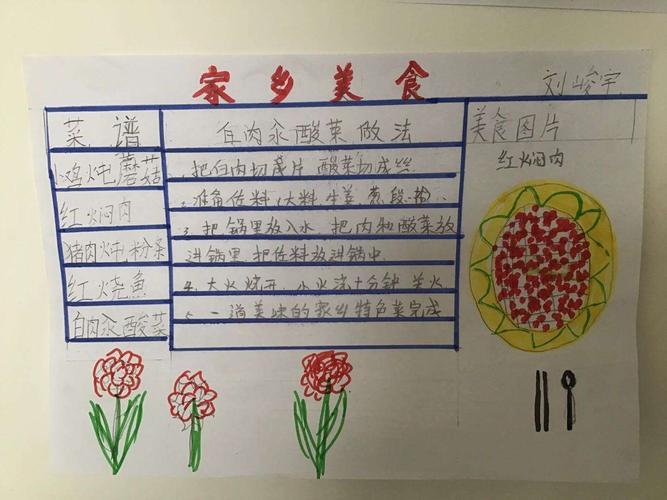 家乡美食
刘峻宇
菜谱
小鸡炖蘑菇
红火闷肉
猪肉炖粉条
红火烧鱼
白肉汆酸菜
白肉汆酸菜做法
1.把白肉切成片 酸菜切成丝
2.准备佐料 大料 生姜 葱段
3.把锅里放入水 把肉和酸菜放
进锅里 把佐料放进锅中
4.大火烧开 小火炖十分钟 关火
5.一道美味的家乡特色菜完成
美食图片
红火闷肉